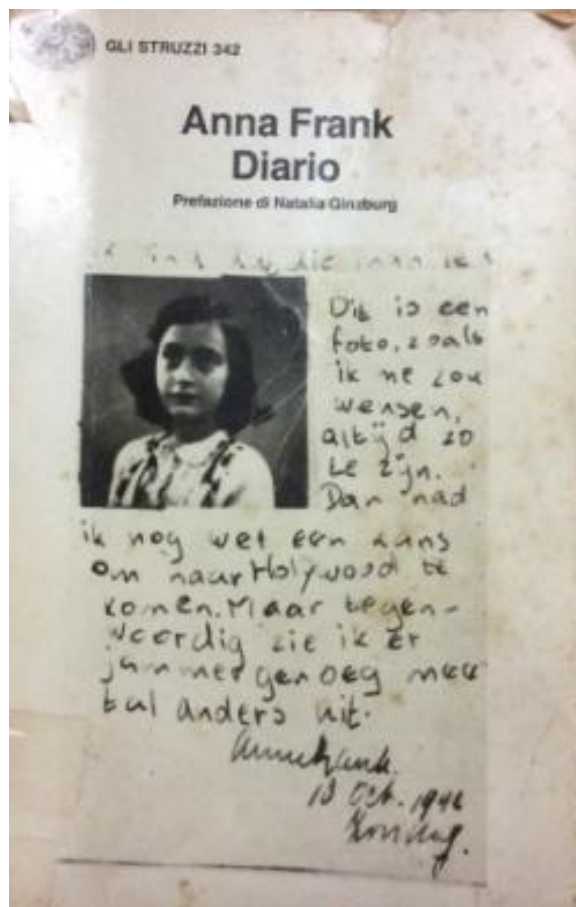 GLI STRUZZI 342
Anna Frank
Diario
Prefazione di Natalia Ginzburg
Dit is een
foto, zoals
ik me zou
wensen,
altijd zo
te zijn.
Dan had
ik nog wel een kans
om naar Holywood te
komen. Maar tegen-
woordig zie ik er
jammer genoeg mees
tal anders uit.
Anne Frank.
18 Oct. 1942
Zondag.